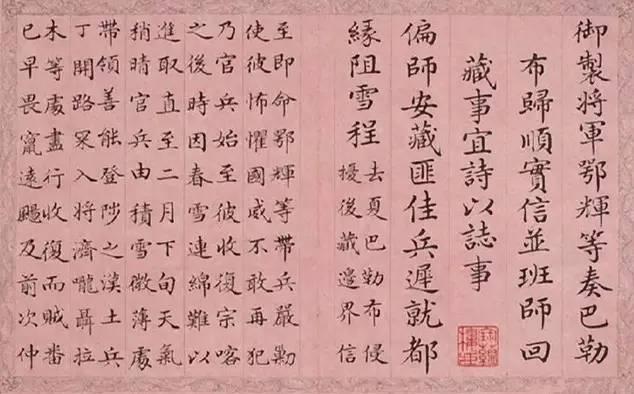 御製將軍鄂輝等奏巴勒
布歸順實信並班師回
藏事宜詩以誌事
偏師安藏匪佳兵遲就都
緣阻雪程
去夏巴勒布侵
擾後藏邊界信
至即命鄂輝等帶兵嚴勦
使彼怖懼國威不敢再犯
乃官兵始至彼收復宗喀
之後時因春雪連綿難以
進取直至二月下旬天氣
稍晴官兵由積雪微薄處
帶領善能登陟之漢土兵
丁開路罙入將濟嚨聶拉
木等處盡行收復而賊番
已早畏竄遠颺及前次仲